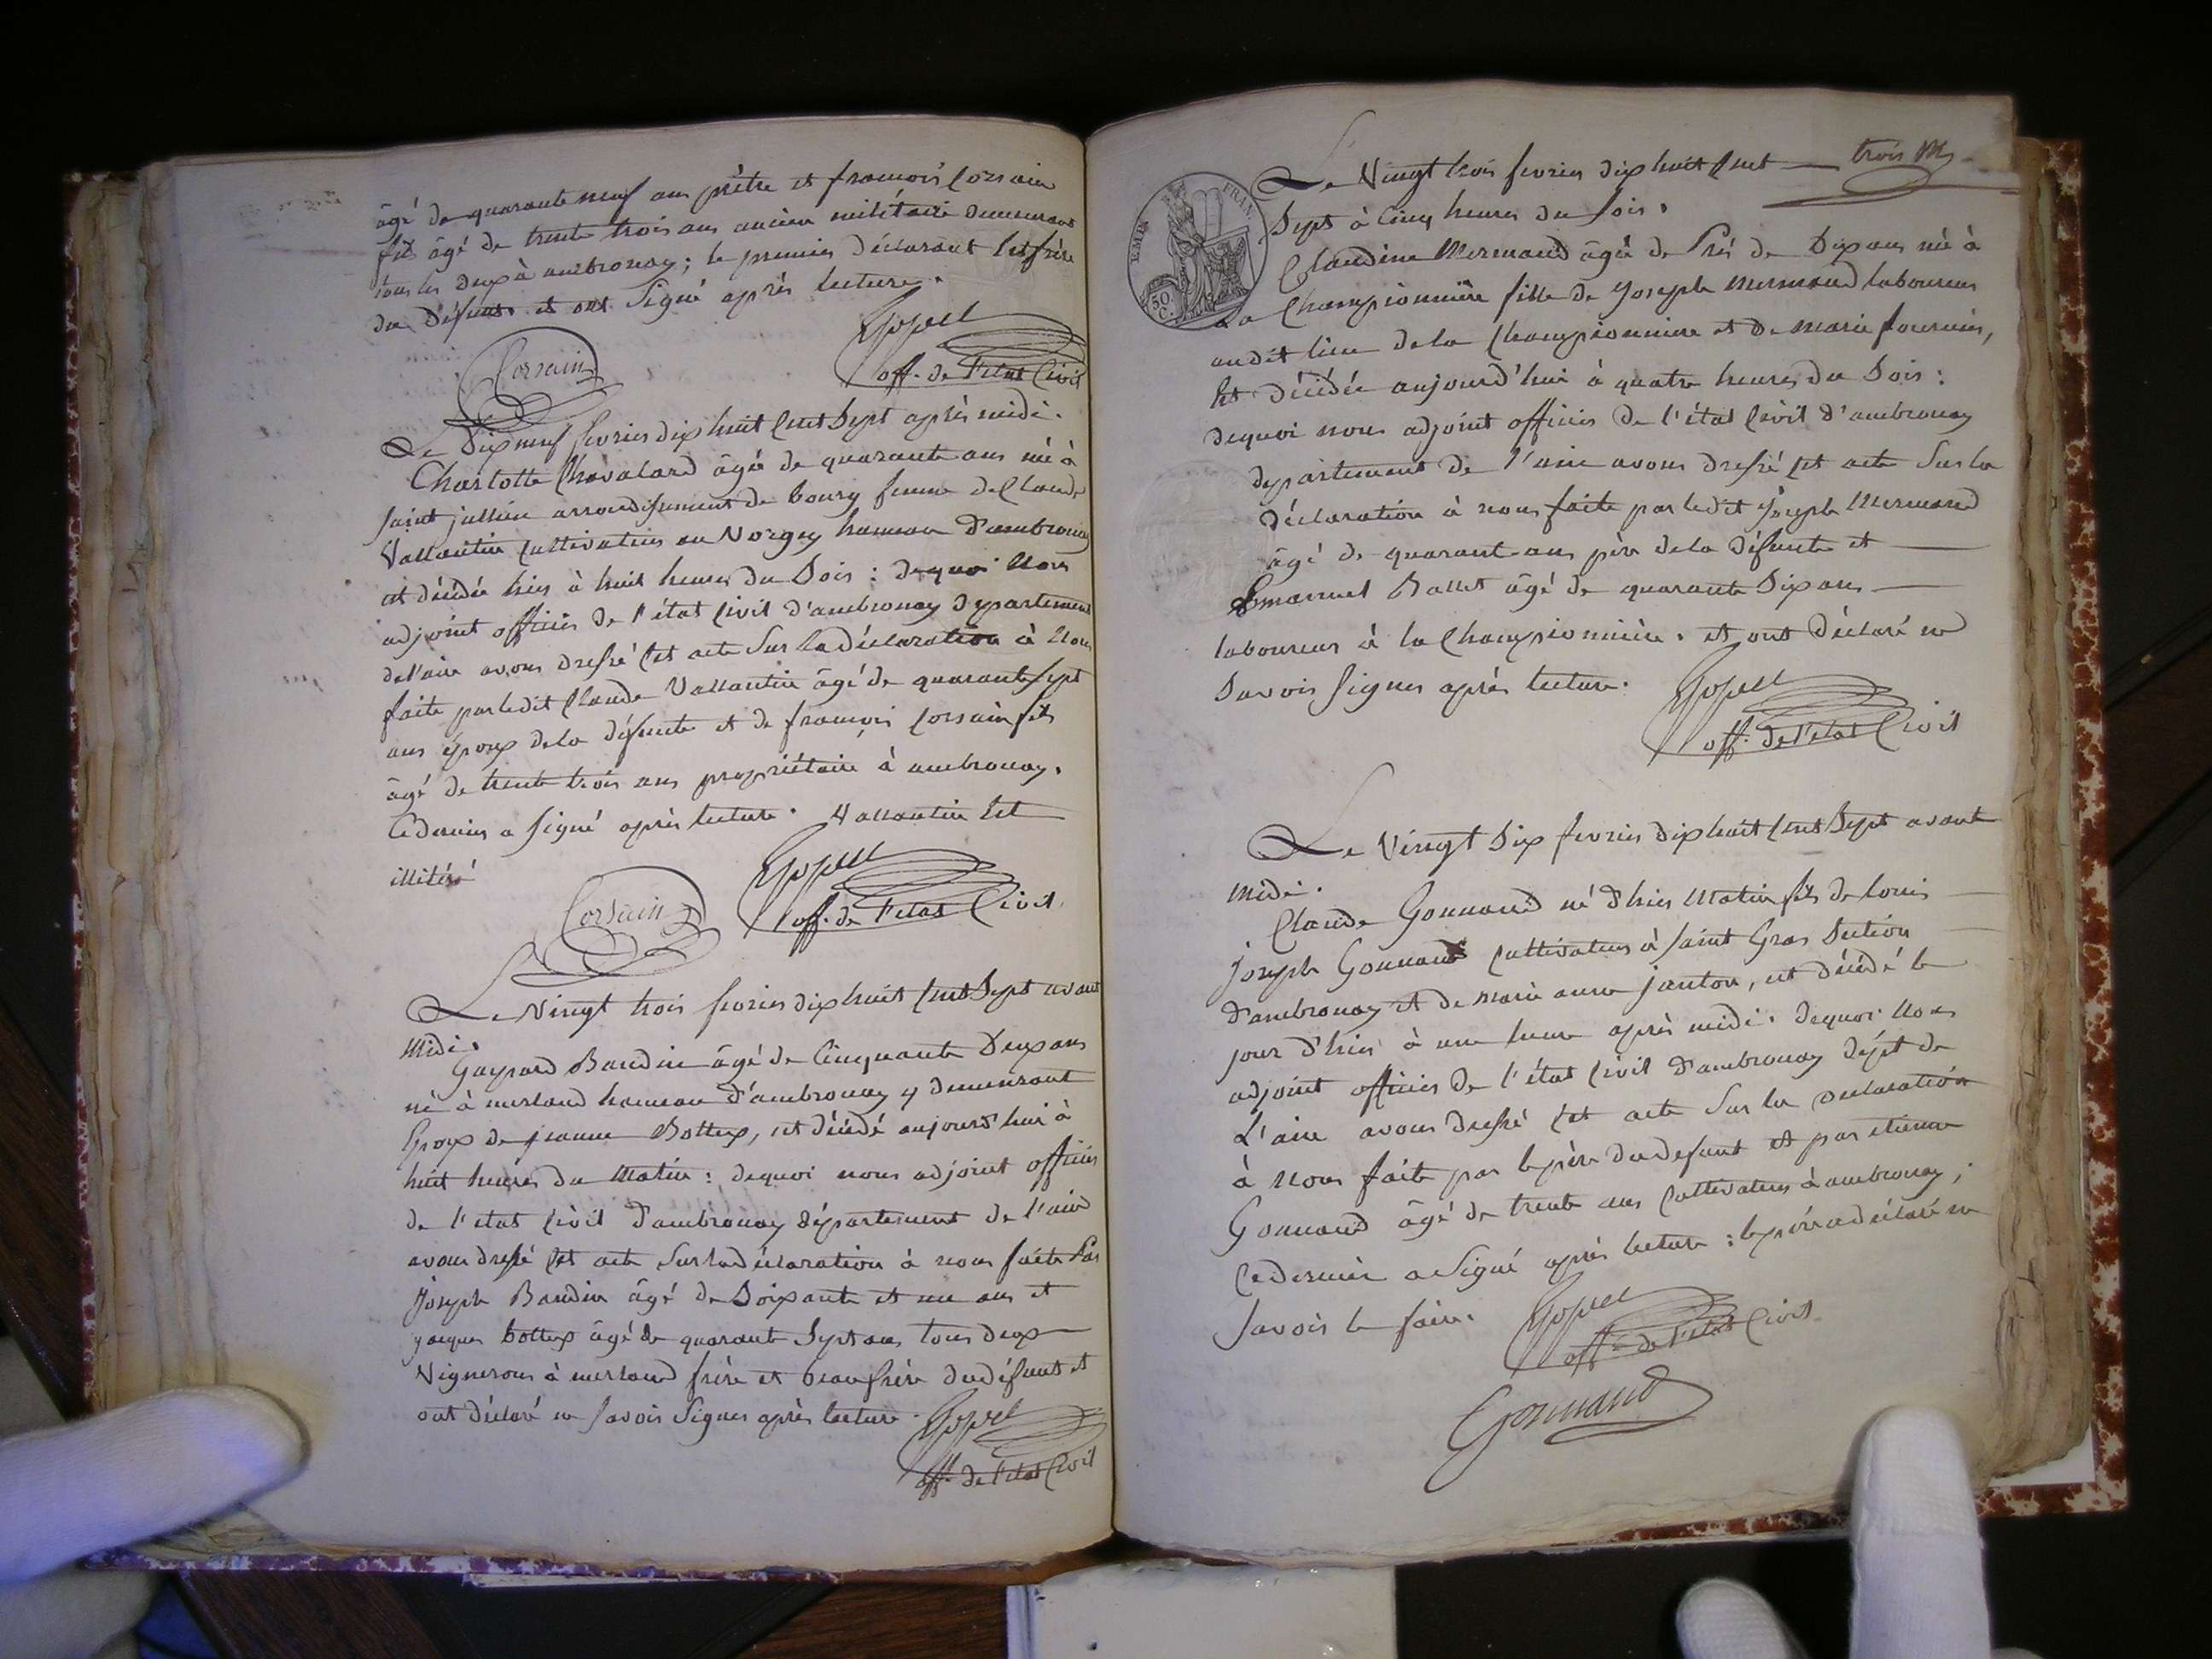 âgé de quarante neuf ans prêtre et françois Corsain
fils âgé de trente trois ans ancien militaire demeurant
tous les deux à ambronay; le premier déclarant est frère
du défunt. et ont signé après lecture.
Corsain
off. de l'etat Civil
Le Dix neuf fevrier dix huit Cent Sept après midi.
Charlotte Chavalard âgée de quarante ans née à
saint jullien arrondissement de bourg femme de Claude
Vallantin Cultivateur au Vorgey hameau d'ambronay
est décédée hier à huit heures du Soir : dequoi Nous
adjoint officier de l'état Civil d'ambronay Departement
de l'ain avons dressé Cet acte Sur la déclaration à Nous
faite par ledit Claude Vallantin âgé de quarante sept
ans époux de la défunte et de françois Corsain fils
âgé de trente trois ans propriétaire à ambronay.
Ce dernier a signé après lecture. Vallantin Est
illitéré
Corsain
off. de l'etat Civil
Le Vingt trois fevrier dix huit Cent Sept avant
Midi.
Gaspard Baudin âgé de Cinquante Deux ans
né à merland hameau d'ambronay y demeurant
Epoux de jeanne Bottex, est décédé aujourd'hui à
huit heures du Matin : dequoi nous adjoint officier
de l'etat Civil d'ambronay département de l'ain
avons dressé Cet acte Sur la déclaration à nous faite Par
joseph Baudin âgé de Soixante et un ans et
jacques bottex âgé de quarante Sept ans tous deux
Vignerons à merland frère et beaufrère du défunt et
ont déclaré ne savoir Signer après lecture.
off. de l'etat Civil
trois M
Le Vingt trois fevrier dix huit Cent
Sept à Cinq heures du soir.
EMP. FRAN.
50 C.
Claudine Mermand âgée de Près de Dix ans née à
La Championnière fille de joseph mermand laboureur
audit lieu de la Championniere et de marie fournier,
Est décédée aujourd'hui à quatre heures du Soir :
dequoi nous adjoint officier de l'état Civil d'ambronay
departement de l'ain avons dressé Cet acte Sur la
déclaration à nous faite par ledit joseph Mermand
âgé de quarant ans père de la défunte et
Emanuel Ballet âgé de quarante Six ans
laboureur à la Championnière. et ont déclaré ne
Savoir signer après lecture.
off. de l'etat Civil
Le Vingt Six fevrier dix huit Cent Sept avant
midi.
Claude Gonnand né d'hier Matin fils de louis
joseph Gonnand Cultivateur à saint Gras Section
d'ambronay et de marie anne janton, est décédé le
jour d'hier à une heure après midi. dequoi Nous
adjoint officier de l'état Civil d'ambronay dépt de
L'ain avons dressé Cet acte Sur la declaration
à Nous faite par le père du defunt et par etienne
Gonnand âgé de trente ans Cultivateur à ambronay;
Ce dernier a Signé après lecture : le père a déclaré ne
savoir le faire.
off. de l'etat Civil
Gonnand